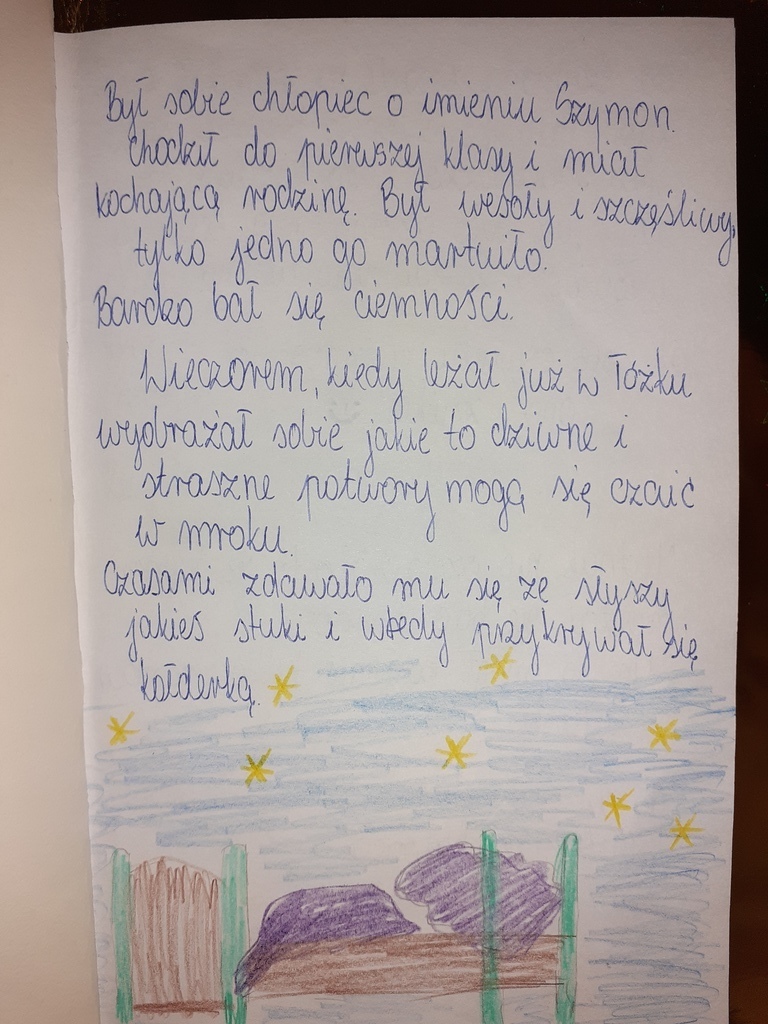 Był sobie chłopiec o imieniu Szymon.
Chodził do pierwszej klasy i miał
kochającą rodzinę. Był wesoły i szczęśliwy,
tylko jedno go martwiło.
Bardzo bał się ciemności.
Wieczorem, kiedy leżał już w łóżku
wyobrażał sobie jakie to dziwne i
straszne potwory mogą się czaić
w mroku.
Czasami zdawało mu się że słyszy
jakieś stuki i wtedy przykrywał się
kołderką.